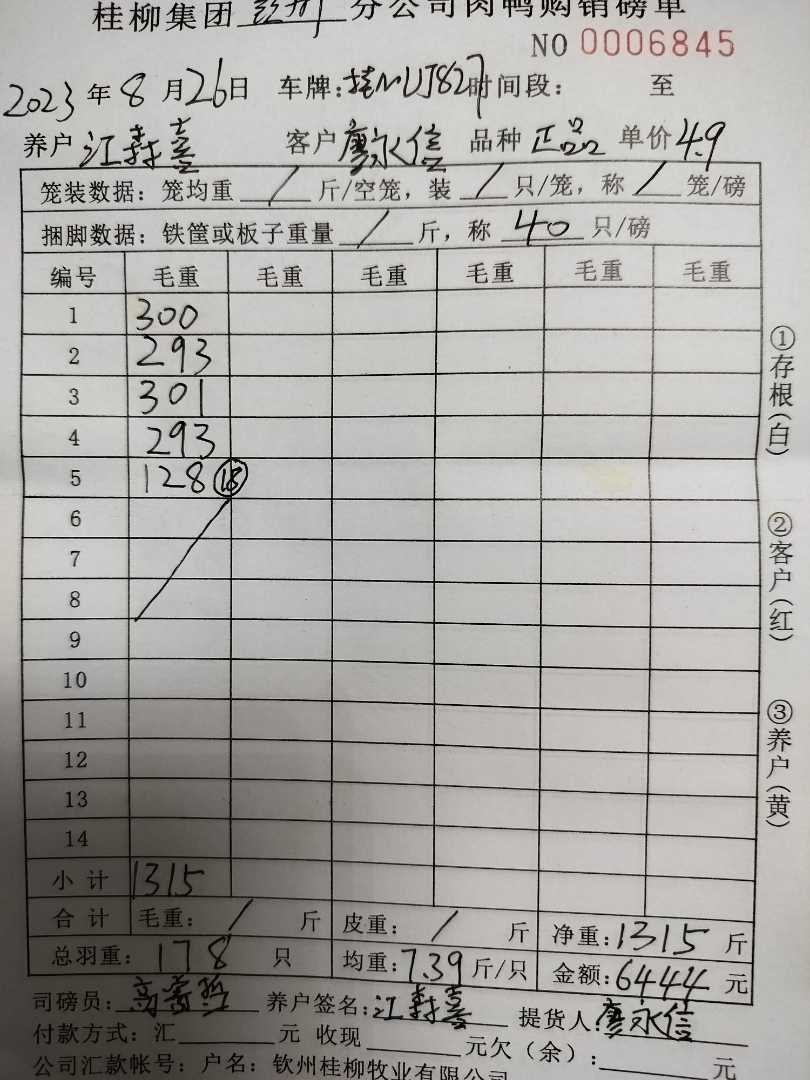 桂柳集团 分公司肉鸭购销磅单
NO 0006845
2023年8月26日 车牌: 827 时间段: 至
养户 江森喜 客户 廖永信 品种 正品 单价 4.9
笼装数据: 笼均重 / 斤/空笼, 装 / 只/笼, 称 / 笼/磅
捆脚数据: 铁筐或板子重量 / 斤, 称 40 只/磅
编号 毛重 毛重 毛重 毛重 毛重 毛重
1 300
2 293
3 301
4 293
5 128 18
6
7
8
9
10
11
12
13
14
小计 1315
合计 毛重: / 斤 皮重: / 斤 净重: 1315 斤
总羽重: 178 只 均重: 7.39 斤/只 金额: 6444 元
司磅员: 养户签名: 江森喜 提货人: 廖永信
付款方式: 汇 元 收现 元欠(余): 元
公司汇款帐号: 户名: 钦州桂柳牧业有限公司
①存根(白)
②客户(红)
③养户(黄)